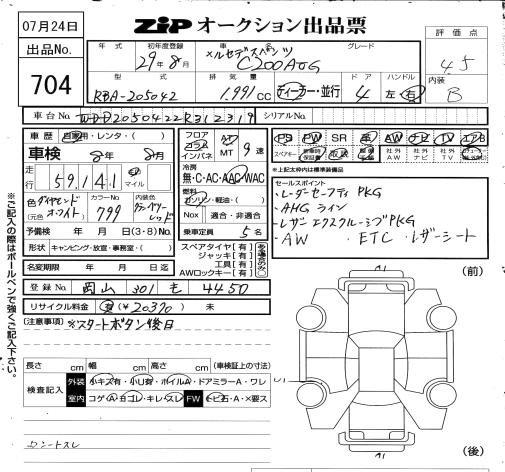 07月24日
ZiP オークション出品票
出品No.
704
年式
初年度登録
29年8月
車名
メルセデスベンツ
C200 AMG
グレード
評価点
4.5
型式
RBA-205042
排気量
1,991 CC
ディーラー・並行
ドア
4
ハンドル
左・右
内装
B
車台No.
WDD2050422R312319
シリアルNo.
車歴
自家用・レンタ・( )
車検
8年 8月
走行
59,141
マイル
フロア
コラム
インパネ
AT
MT
9速
冷房
無・C・AC・AAC・WAC
燃料
ガソリン・軽油・( )
Nox
適合・非適合
乗車定員
5名
PS PW SR 革 AW ナビ TV エアB
スペアキー
取説
社外AW
社外ナビ
社外TV
*上記太枠内は標準装備品
色
ダイヤモンドホワイト
(元色)
カラーNo.
799
内装色
クランベリーレッド
予備検
年 月 日(3・8)No.
形状
キャンピング・放宣・事務室・( )
名変期限
年 月 日迄
スペアタイヤ[有]
ジャッキ[有]
工具[有]
AWロックキー[有]
セールスポイント
・レーダーセーフティPKG
・AMGライン
・レザーエクスクルーシブPKG
・AW ・ETC・レザーシート
登録No.
岡山 301 も 4450
リサイクル料金
済(¥20370) 未
(注意事項)
※スタートボタン後日
長さ cm 幅 cm 高さ cm (車検証上の寸法)
検査記入
外装
小キズ有・小U有・ホイルA・ドアミラーA・ワレ
室内
コゲA・ヨゴレ・キレ・スレ
FW
トビ石・A・X要ス
シートスレ
(前)
(後)
※ご記入の際はボールペンで強くご記入下さい。